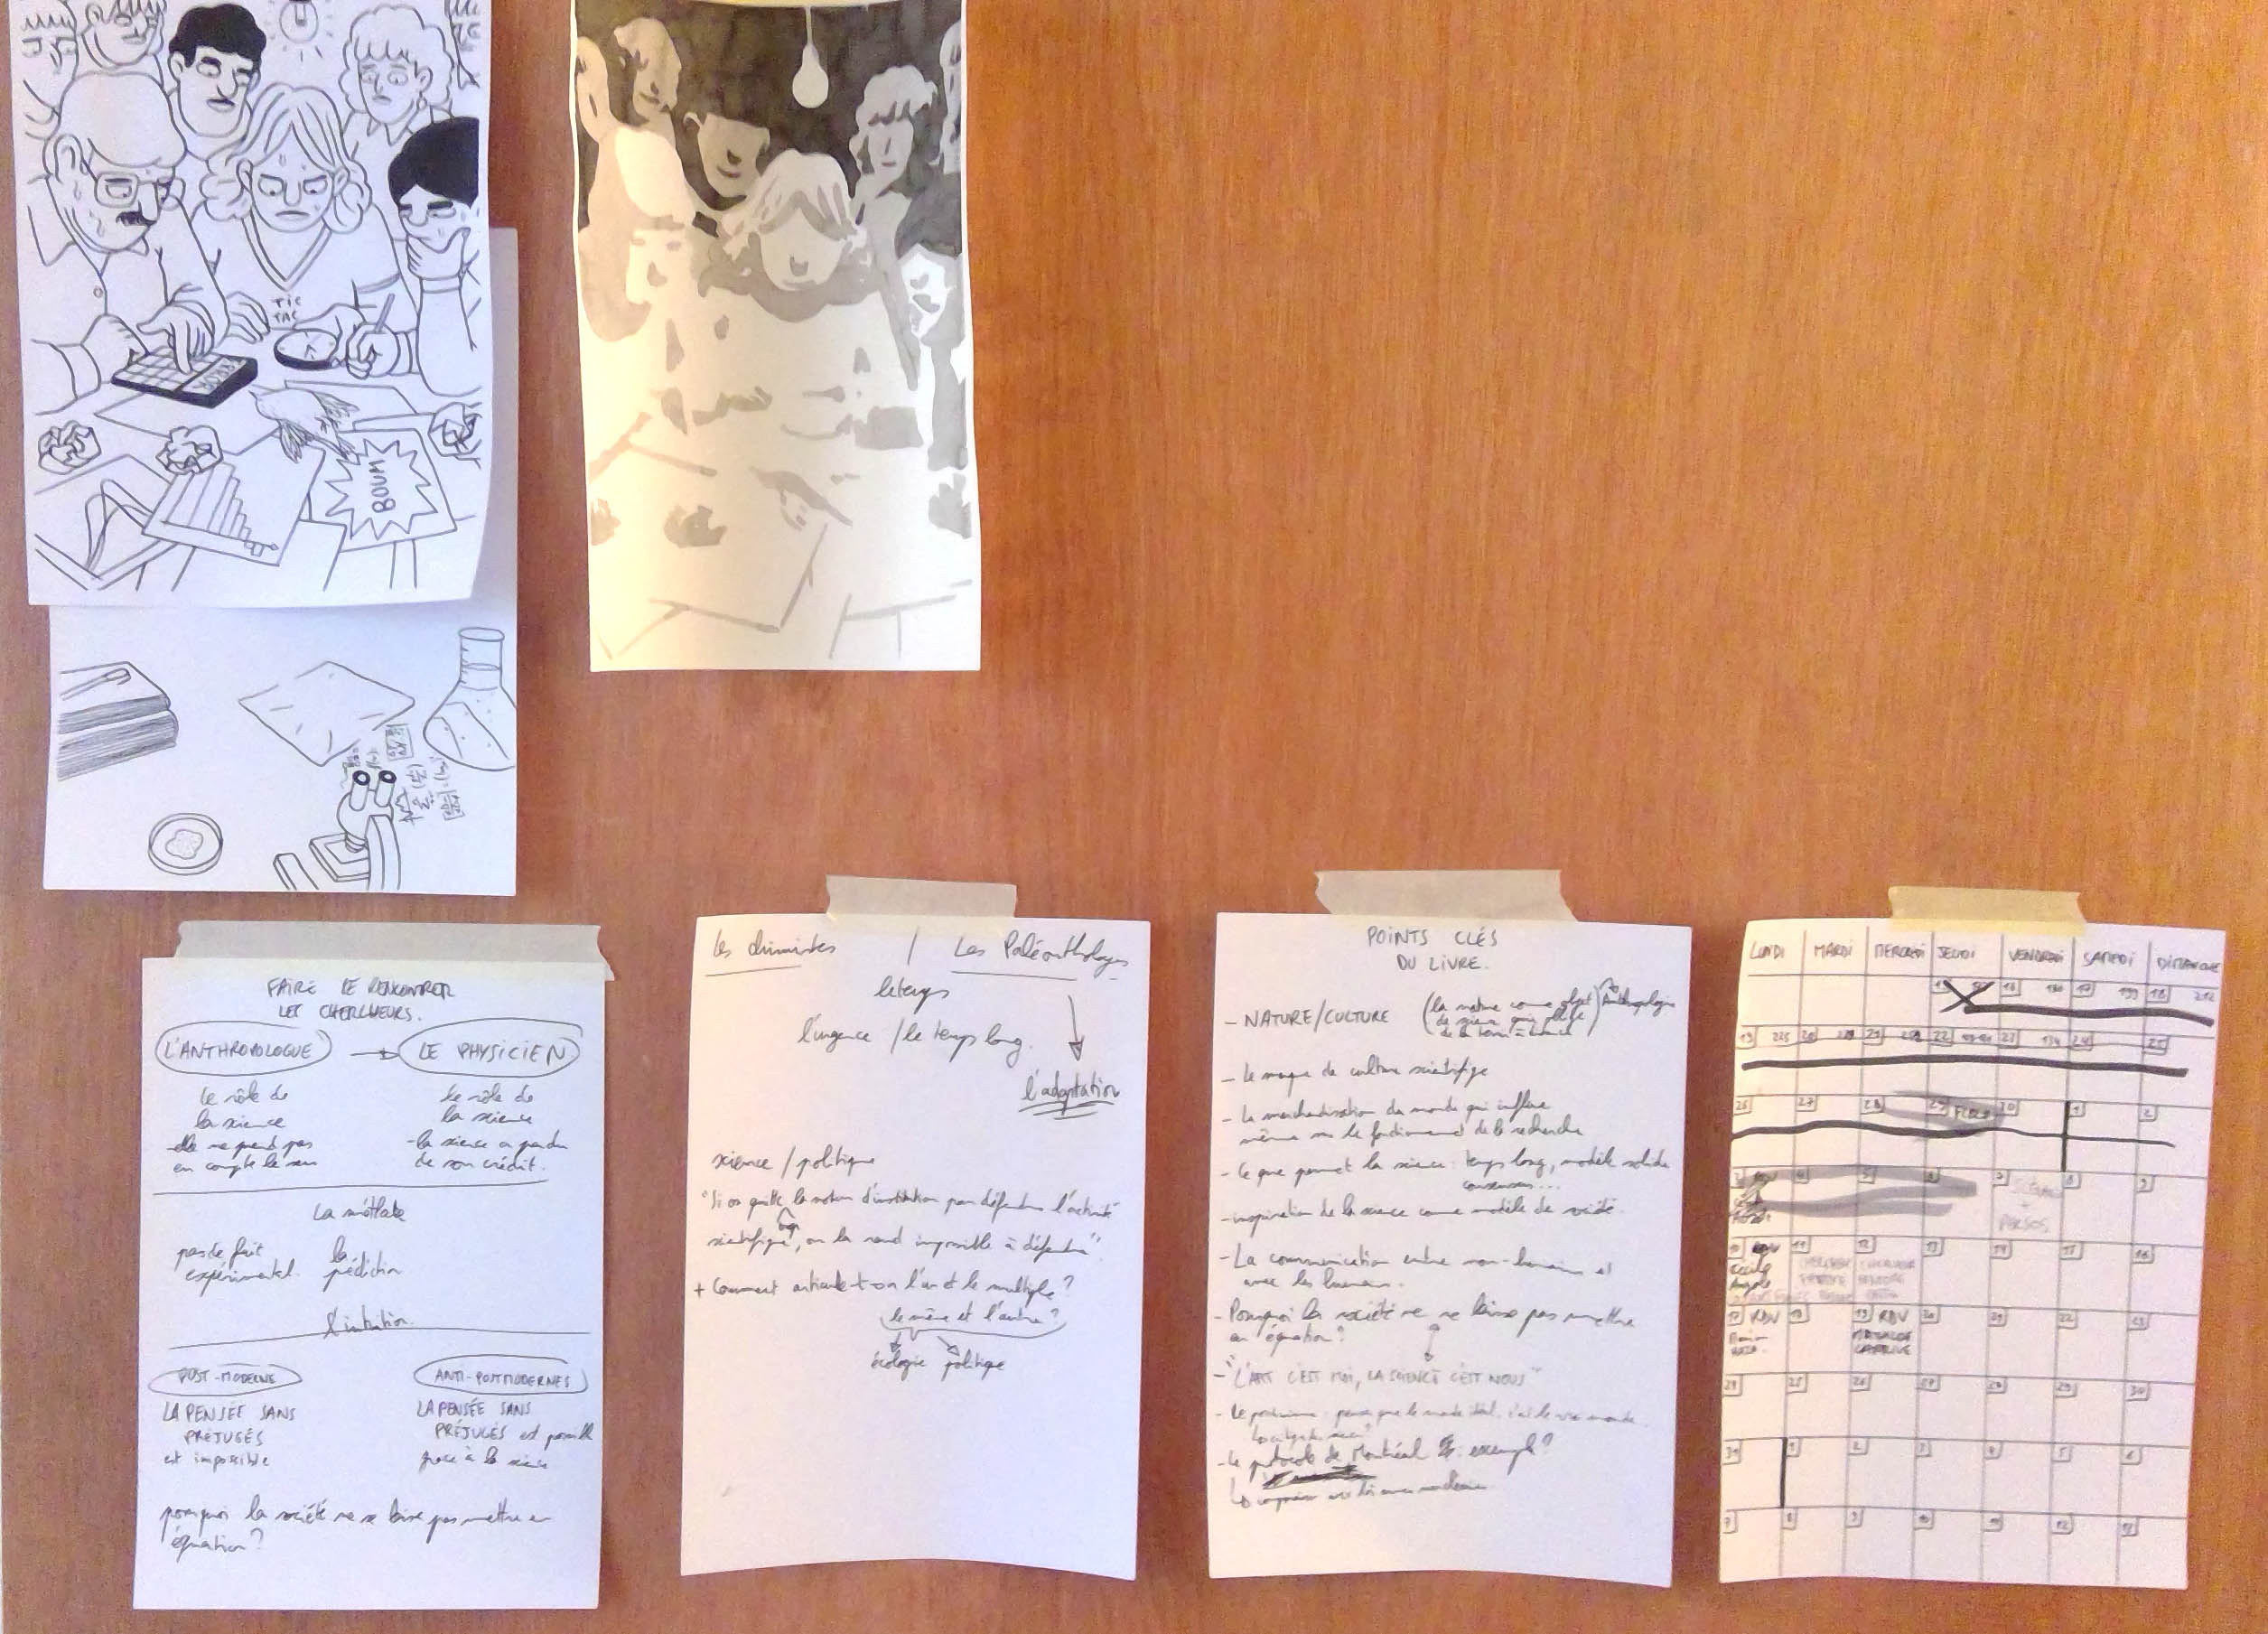 TIC
TAC
BOUM
FAIRE SE RENCONTRER
LES CHERCHEURS.
L'ANTHROPOLOGUE → LE PHYSICIEN
Le rôle de
la science
elle ne prend pas
en compte le
Le rôle de
la science
-la science a perdu
de son crédit.
La météo
pas de fait
expérimental.
la
prédiction
l'intuition.
POST-MODERNE
LA PENSÉE SANS
PRÉJUGÉS
est impossible
ANTI-POSTMODERNES
LA PENSÉE SANS
PRÉJUGÉS est possible
grâce à la science
pourquoi la société ne se laisse pas mettre en
équation?
Les chimistes / Les Paléonthologues
le temps
l'urgence / le temps long.
l'adaptation
science / politique
"Si on quitte la notion d'institution pour défendre l'activité
scientifique, on la rend impossible à défendre"
+ Comment articule-t-on l'un et le multiple?
le même et l'autre?
écologie politique
POINTS CLÉS
DU LIVRE.
- NATURE/CULTURE (la nature comme objet Anthropologie
- Le manque de culture scientifique
- La marchandisation du monde qui influe
même sur le fonctionnement de la recherche
- Ce que permet la science: temps long, modèle solide
consensus...
- inspiration de la science comme modèle de société.
- La communication entre non-humains et
avec les humains.
- Pourquoi la société ne se laisse pas mettre
en équation?
- "L'ART C'EST MOI, LA SCIENCE C'EST NOUS"
- Le protocole de Montréal exemple?
LUNDI MARDI MERCREDI JEUDI VENDREDI SAMEDI DIMANCHE
15 16 17 18
19 20 21 22 23 24 25
26 27 28 29 30 1 2
3 4 5 6 7 8 9
PERSOS
10 RDV 11 12 13 14 15 16
Cécile
Angèle
17 RDV 18 19 RDV 20 21 22 23
24 25 26 27 28 29 30
31 1 2 3 4 5 6
7 8 9 10 11 12 13